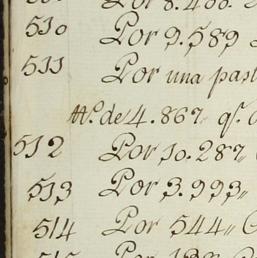 Por 8.400.
510 Por 9.589
511 Por una part
Ms. de 4.867 qs.
512 Por 10.287„
513 Por 3.993„
514 Por 544„
Por